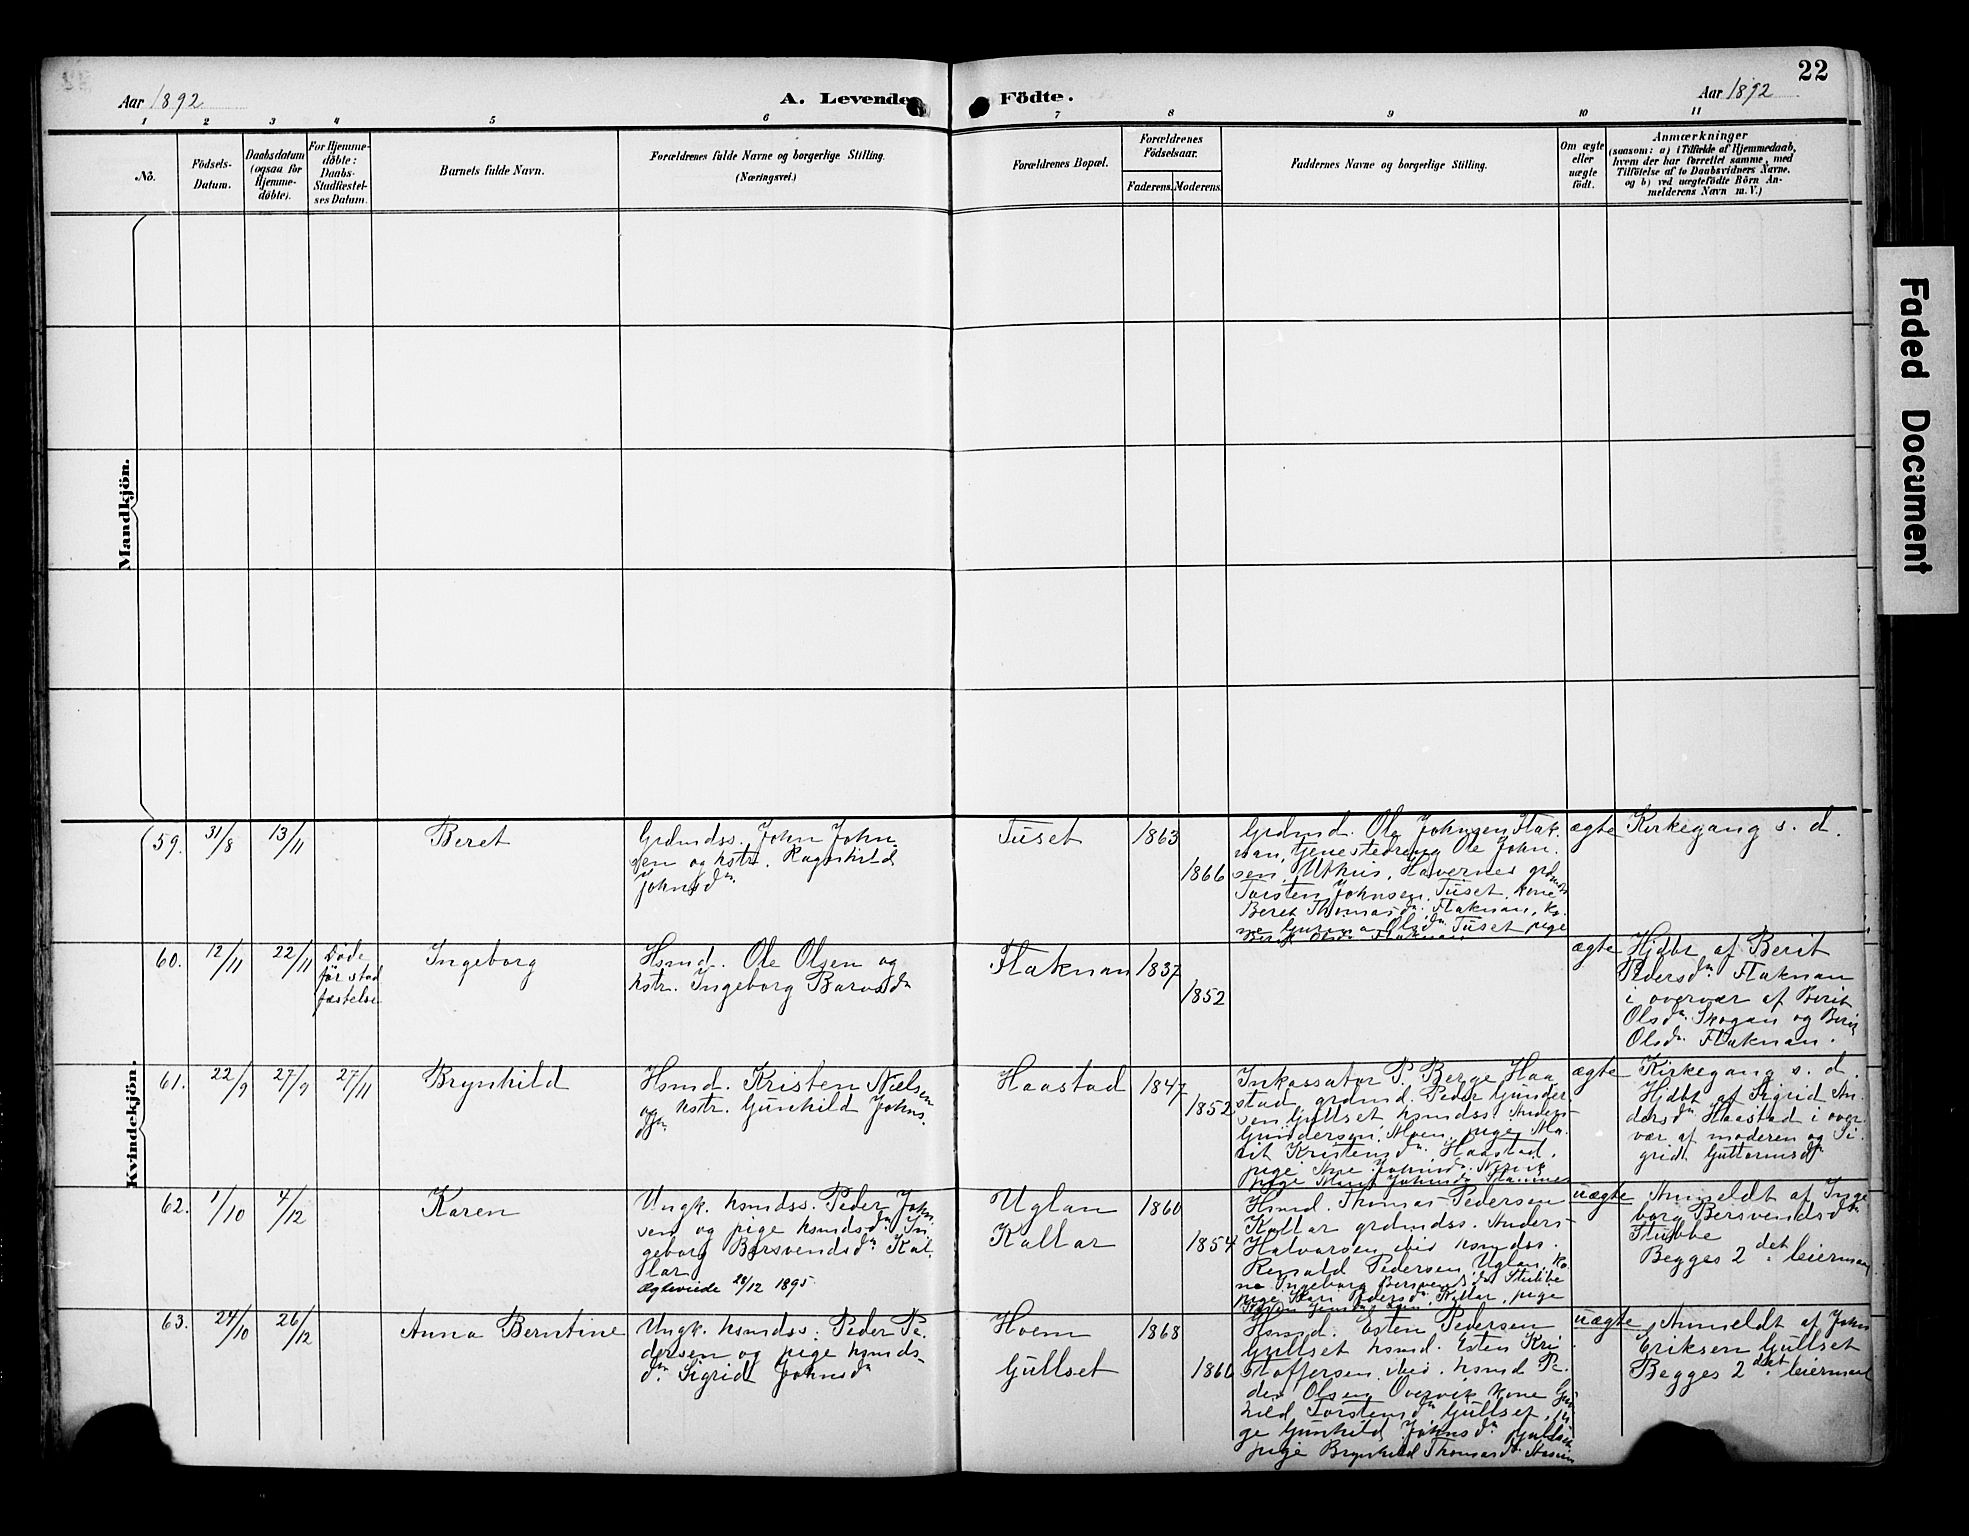 22
Aar 1892
A. Levende Födte.
Aar 1892
1 2 3 4 5 6 7 8 9 10 11
No.
Födsels-
Datum.
Daabsdatum
(ogsaa for
Hjemme-
døbte).
For Hjemme-
døbte:
Daabs-
Stadfæstel-
ses Datum.
Barnets fulde Navn.
Forældrenes fulde Navne og borgerlige Stilling.
(Næringsvei.)
Forældrenes Bopæl.
Forældrenes
Födselsaar.
Faderens. Moderens.
Faddernes Navne og borgerlige Stilling.
Om ægte
eller
uægte
födt.
Anmærkninger
(saasom: a) i Tilfælde af Hjemmedaab,
hvem der har forrettet samme, med
Tilföielse af to Daabsvidners Navne.
og b) ved uægtefödte Börn An-
melderens Navn m. V.)
Mandkjön.
Kvindekjön.
59.
31/8
13/11
Beret
Grdmdss. John John-
sen og kstr. Ragnhild
Johnsdr.
Tuset
1863
1866
Grdmd. Ole Johnsen Flak-
nan, tjenestedreng Ole John-
sen, Uthus,
Torsten Johnsen, Tuset, kone
Beret Thomasdr. Flaknan, ko-
ne Olsdr. Tuset pige
Berit Olsdr. Flaknan
ægte
Kirkegang s. d.
60.
12/11
22/11
Døde
før stad
fæstelse
Ingeborg
Hsmd. Ole Olsen og
kstr. Ingeborg
Flaknan
1837
1852
ægte
Hjdbt af Berit
Pedersdr. Flaknan
i overvær af Berit
Olsdr. Skogan og Berit
Olsdr. Flaknan.
61.
22/9
27/9
27/11
Brynhild
Hsmd. Kristen Nielsen
og kstr. Gunhild Johns-
dr.
Haastad
1847
1852
Inkassator P. Berge Haa
stad, grdmd. Peder Gunder-
sen Gullset hsmdss. Anders
Gunddersen, Moen, pige Ma-
rit Kristensdr. Haastad,
pige Ane Johnsdr.
pige Marit Johnsdr.
ægte
Kirkegang s. d.
Hjdbt af Sigrid An-
dersdr. Haastad i over-
vær af moderen og Si-
grid Guttormsdr.
62.
1/10
4/12
Karen
Ungk. hsmdss. Peder John-
sen og pige hsmdsdr. In-
geborg Bersvendsdr. Kal-
lar
Ægteviede 28/12 1895
Uglan
Kallar
1860
1854
Hsmd. Thomas Pedersen
Kallar grdmdss. Anders
Halvorsen ibid hsmdss.
Renald Pedersen, Uglan, ko-
ne Ingeborg Bersvendsdr. Stubbe
pige Kari Pedersdr. Kallar, pige
uægte
Anmeldt af Inge
borg Bersvendsdr.
Stubbe
Begges 2det leiermaal
63.
24/10
26/12
Anna Berntine
Ungk. hsmdss. Peder Pe-
dersen og pige hsmds-
dr. Sigrid Johnsdr.
Hoem
Gullset
1868
1866
Hsmd. Esten Pedersen
Gullset hsmd. Esten Kri
stoffersen ibid. hsmd Pe-
der Olsen Overvik kone Gun
hild Torstensdr. Gullset, pi-
ge Gunhild Johnsdr. Gullset
pige Brynhild Thomasdr.
uægte
Anmeldt af John
Eriksen Gullset
Begges 2det leiermaal
Faded Document